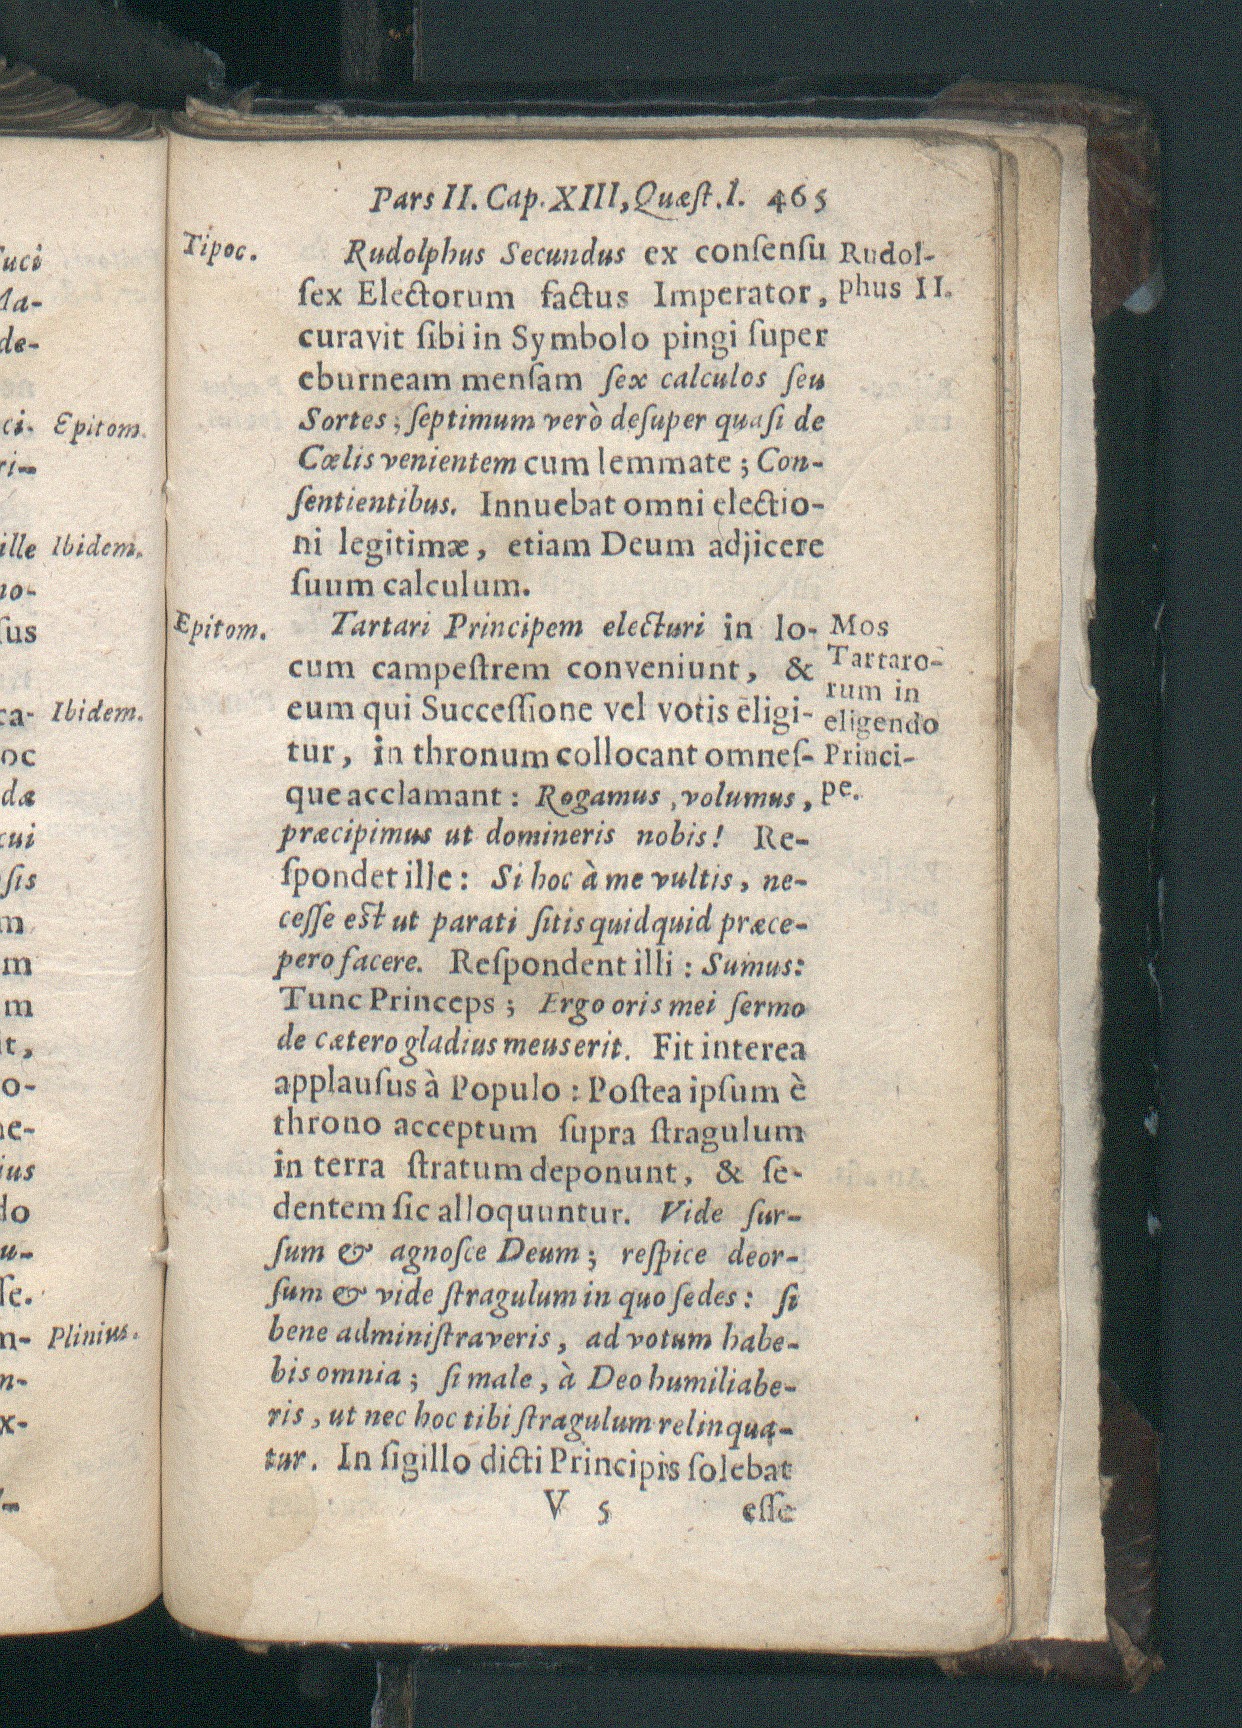 Pars II. Cap. XIII, Quæſt. I. 465
Tipoc.
Rudolphus Secundus ex conſenſu
ſex Electorum factus Imperator,
curavit ſibi in Symbolo pingi ſuper
eburneam menſam ſex calculos ſeu
Sortes; ſeptimum verò deſuper quaſi de
Cœlis venientem cum lemmate; Con-
ſentientibus. Innuebat omni electio-
ni legitimæ, etiam Deum adjicere
ſuum calculum.
Rudol-
phus II.
Epitom.
Tartari Principem electuri in lo-
cum campeſtrem conveniunt, &
eum qui Succeſſione vel votis eligi-
tur, in thronum collocant omneſ-
que acclamant: Rogamus, volumus,
præcipimus ut domineris nobis! Re-
ſpondet ille: Si hoc à me vultis, ne-
ceſſe eſt ut parati ſitis quidquid præce-
pero facere. Reſpondent illi: Sumus:
Tunc Princeps; Ergo oris mei ſermo
de cætero gladius meus erit. Fit interea
applauſus à Populo: Poſtea ipſum è
throno acceptum ſupra ſtragulum
in terra ſtratum deponunt, & ſe-
dentem ſic alloquuntur. Vide ſur-
ſum & agnoſce Deum; reſpice deor-
ſum & vide ſtragulum in quo ſedes: ſi
bene adminiſtraveris, ad votum habe-
bis omnia; ſi male, à Deo humiliabe-
ris, ut nec hoc tibi ſtragulum relinqua-
tur. In ſigillo dicti Principis ſolebat
Mos
Tartaro-
rum in
eligendo
Princi-
pe.
V 5 eſſe
Epitom.
Ibidem.
Ibidem.
Plinius.